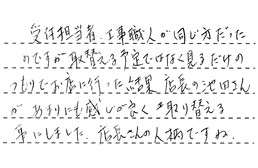 受付担当者、工事職人が同じ方だった
のですが取替える予定ではなく見るだけの
つもりでお店に行った結果、店長の池田さん
があまりにも感じが良く取り替える
事にしました。店長さんの人柄ですね。